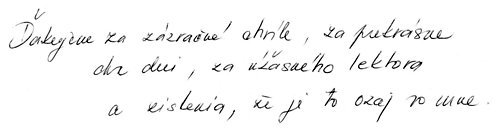 Ďakujeme za zázračné chvíle, za prekrásne
dni, za úžasného lektora
a zistenia, že je to ozaj vo mne.